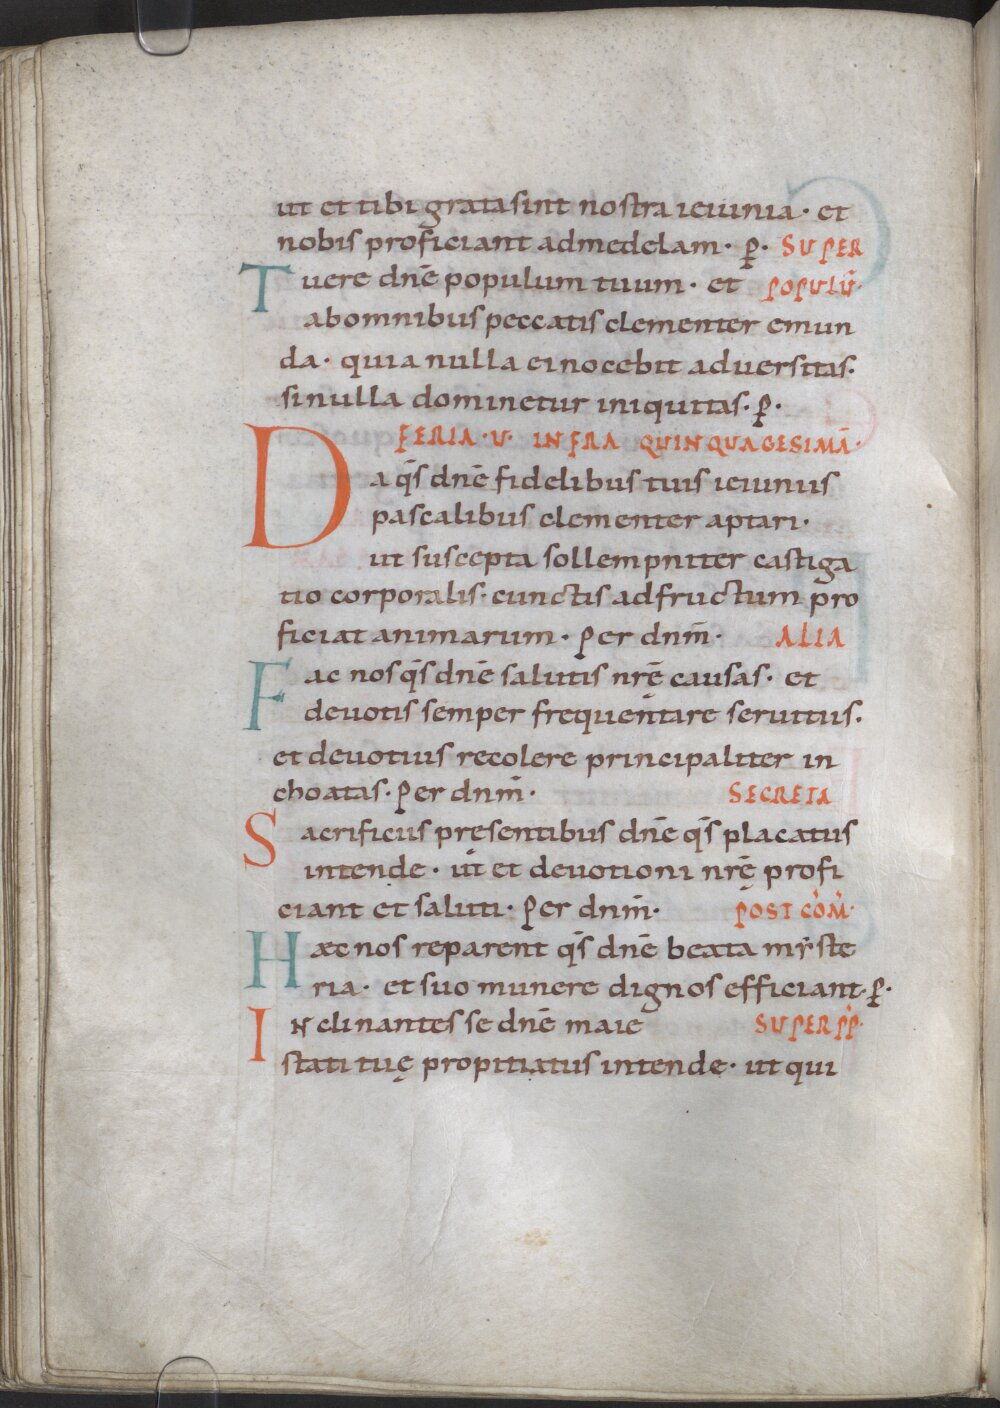 ut et tibi grata sint nostra ieiunia · et
nobis proficiant ad medelam · p̄ · SUPER
Tuere dn̄e populum tuum · et POPULŪ·
ab omnibus peccatis clementer emun
da · quia nulla ei nocebit aduersitas·
si nulla dominetur iniquitas · p̄ ·
FERIA · V · INFRA QUINQUAGESIMĀ·
Da q̄s dn̄e fidelibus tuis ieiuniis
pascalibus clementer aptari ·
ut suscepta sollempniter castiga
tio corporalis · cunctis ad fructum pro
ficiat animarum · Per dnm̄ · ALIA
Fac nos q̄s dn̄e salutis nr̄ę causas · et
deuotis semper frequentare seruitiis ·
et deuotius recolere principaliter in
choatas · Per dnm̄ · SECRETA
Sacrificiis presentibus dn̄e q̄s placatus
intende · ut et deuotioni nr̄ę profi
ciant et saluti · Per dnm̄ · POST COM̄·
Haec nos reparent q̄s dn̄e beata mẏste
ria · et suo munere dignos efficiant · p̄ ·
Inclinantes se dn̄e maie SUPER PP̄·
stati tuę propitiatus intende · ut qui